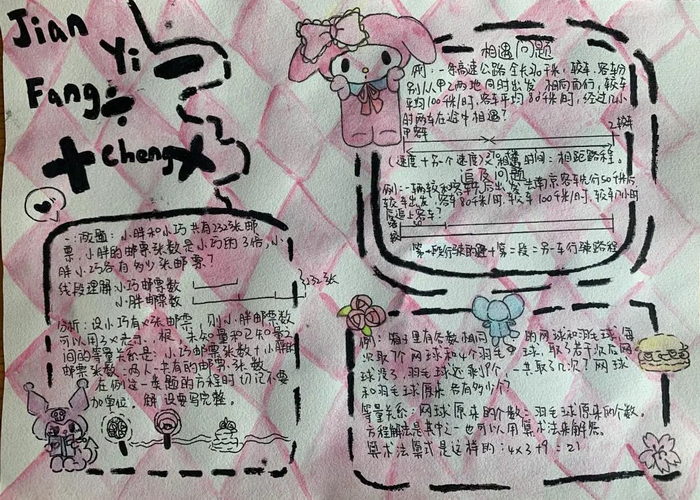 Jian
Yi
Fang
Cheng
一、倍数题：小胖和小巧共有232张邮
票，小胖的邮票张数是小巧的3倍，小
胖小巧各有多少张邮票？
线段理解：小巧邮票数
小胖邮票数
}232张
分析：设小巧有x张邮票，则小胖邮票数
可以用3x表示，根 未知量和已知量之
间的等量关系是：小巧邮票张数+小胖的
邮票张数=两人一共有的邮票张数
在例这一类题的方程时切记不要
加单位，解设要写完整。
相遇问题
例：一条高速公路全长 千米，轿车、客车分
别从甲乙两地同时出发 相向而行，轿车
平均100千米/时，客车平均80千米/时，经过几小
时两车在途中相遇？
(速度+另一个速度) 相遇时间=相距路程。
追及问题
例：一辆轿车和客车 出发去南京客车先行50千米后
轿车出发，客车80千米/时，轿车100千米/时，轿车几小时
后追上客车？
第一段行驶的路+第二段=另一车行驶路程
例：箱子里有个数相同的网球和羽毛球，每
次取7个网球和4个羽毛球，取了若干次后网
球没了，羽毛球还剩9个，一共取了几次？网球
和羽毛球原来各有多少个？
等量关系：网球原来的个数=羽毛球原来的个数。
方程解法是其中之一也可以用算术法来解答。
算术法算式是这样的：4×3+9=21